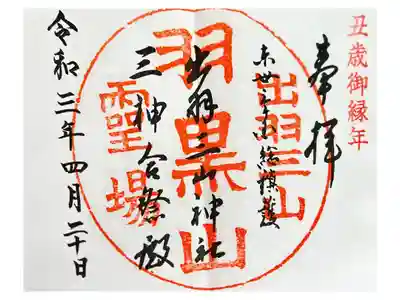 丑歳御縁年
奉拝
総鎮護
出羽三山
羽黒山
靈場
出羽三山神社
三神合祭殿
令和三年四月二十日